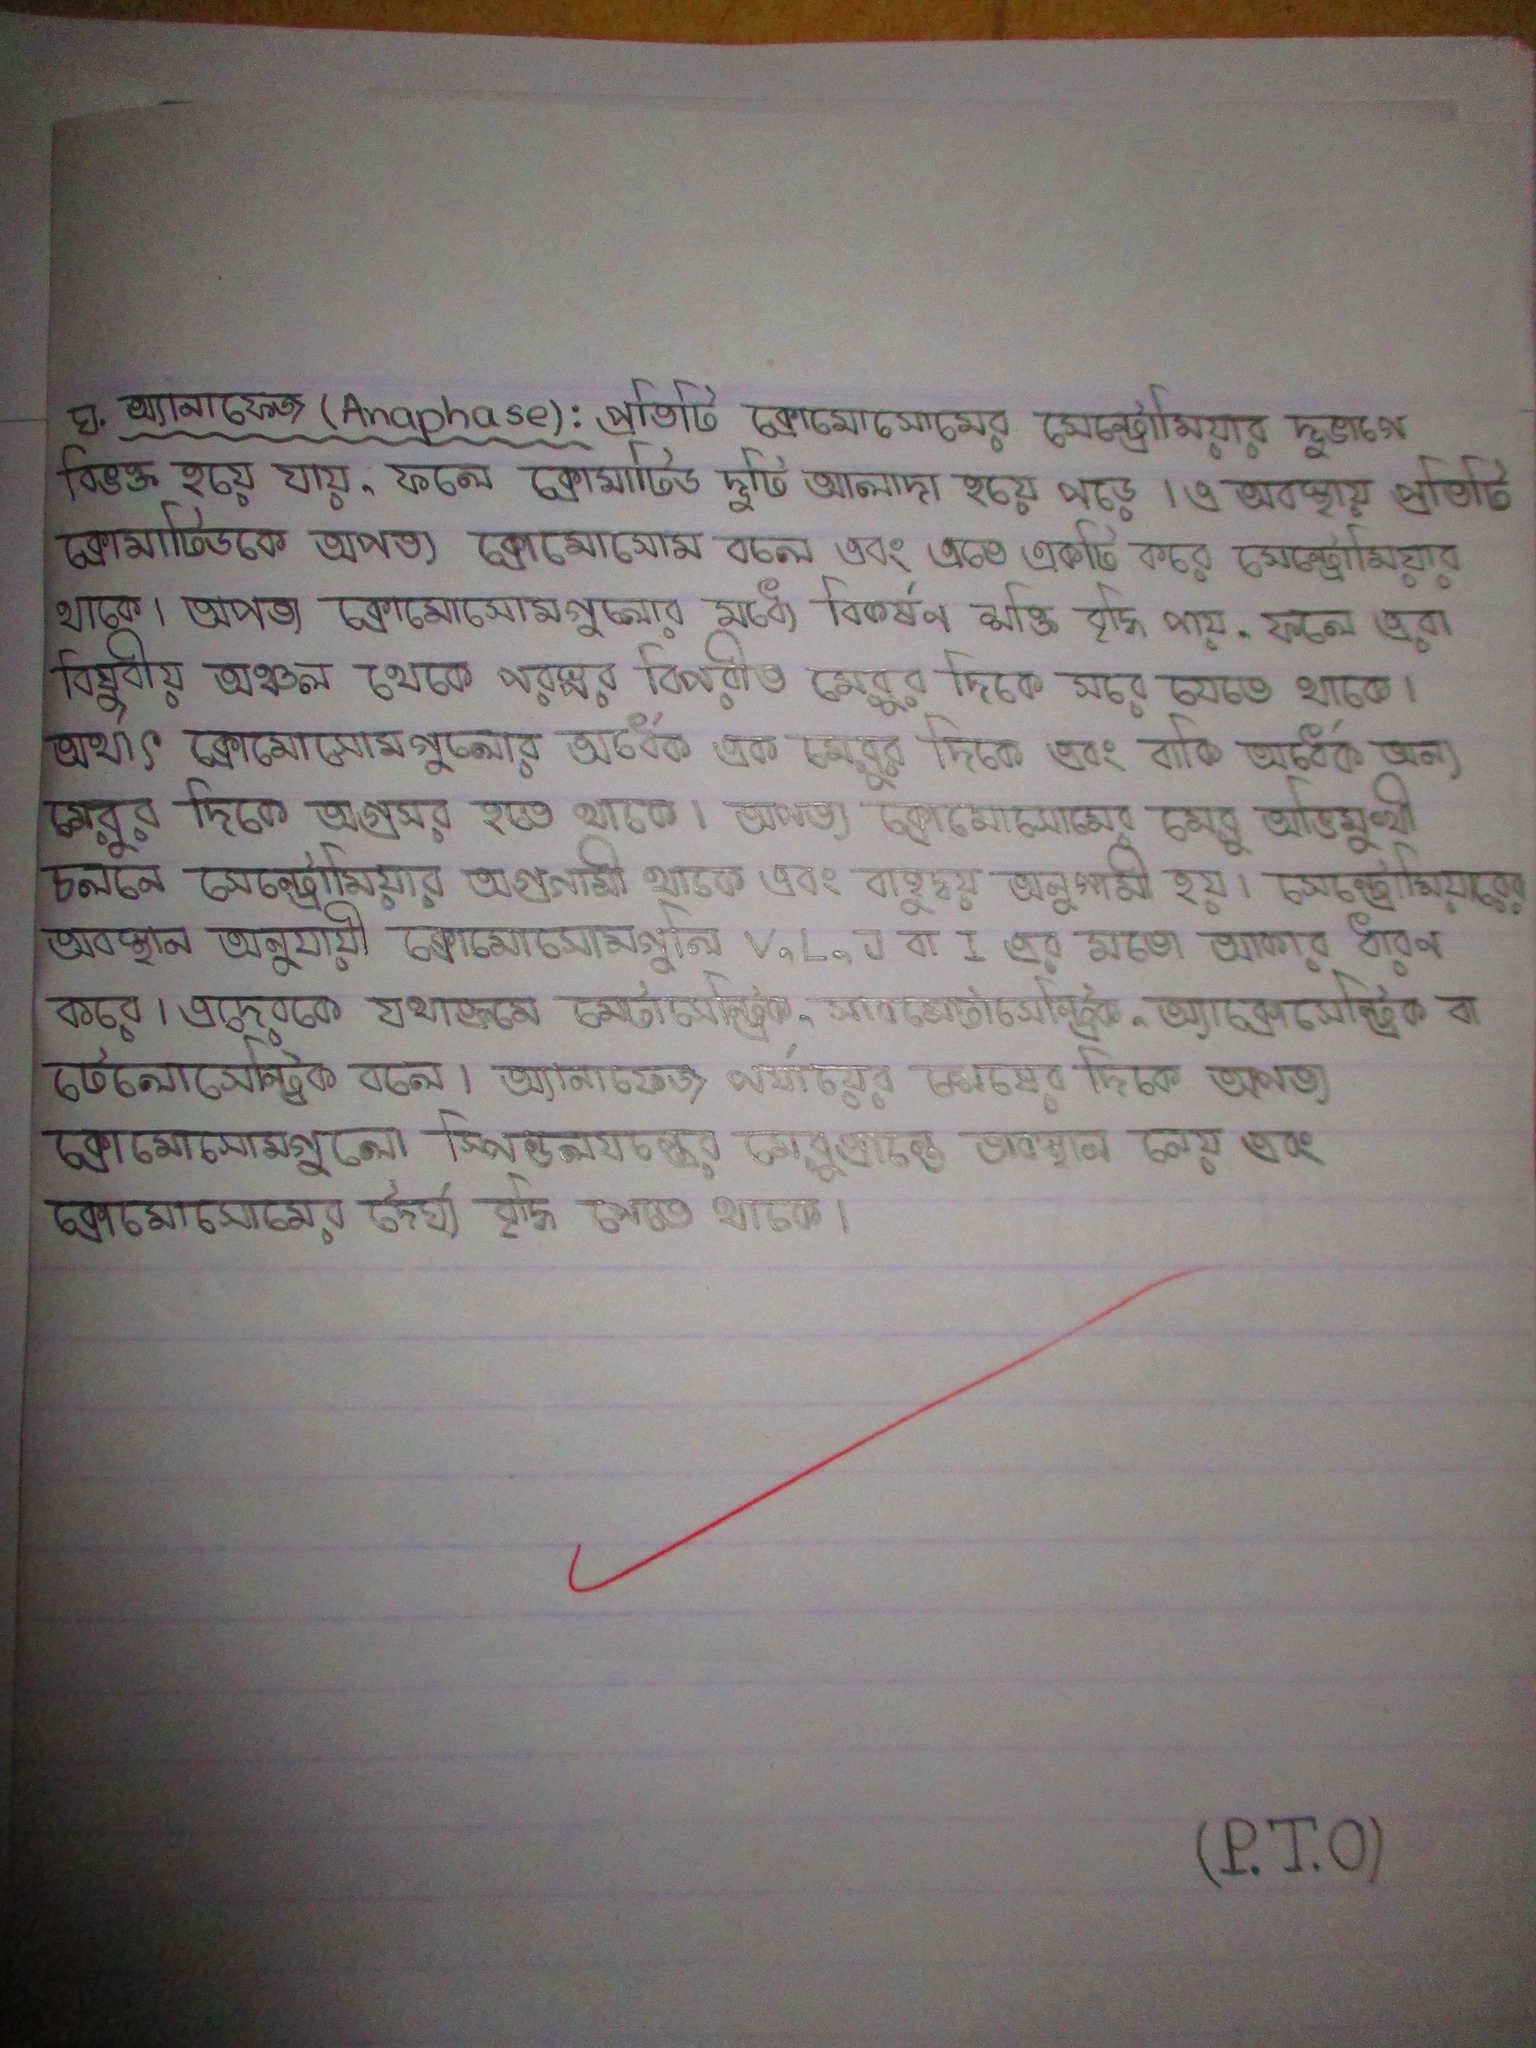 ঘ. অ্যানাফেজ (Anaphase): প্রতিটি ক্রোমোসোমের সেন্ট্রোমিয়ার দুভাগে
বিভক্ত হয়ে যায়, ফলে ক্রোমাটিড দুটি আলাদা হয়ে পড়ে। এ অবস্থায় প্রতিটি
ক্রোমাটিডকে অপত্য ক্রোমোসোম বলে এবং এতে একটি করে সেন্ট্রোমিয়ার
থাকে। অপত্য ক্রোমোসোমগুলোর মধ্যে বিকর্ষণ শক্তি বৃদ্ধি পায়, ফলে এরা
বিষুবীয় অঞ্চল থেকে পরস্পর বিপরীত মেরুর দিকে সরে যেতে থাকে।
অর্থাৎ ক্রোমোসোমগুলোর অর্ধেক এক মেরুর দিকে এবং বাকি অর্ধেক অন্য
মেরুর দিকে অগ্রসর হতে থাকে। অপত্য ক্রোমোসোমের মেরু অভিমুখী
চলনে সেন্ট্রোমিয়ার অগ্রগামী থাকে এবং বাহুদ্বয় অনুগামী হয়। সেন্ট্রোমিয়ারের
অবস্থান অনুযায়ী ক্রোমোসোমগুলি V, L, J বা I এর মতো আকার ধারণ
করে। এদেরকে যথাক্রমে মেটাসেন্ট্রিক, সাবমেটাসেন্ট্রিক, অ্যাক্রোসেন্ট্রিক বা
টেলোসেন্ট্রিক বলে। অ্যানাফেজ পর্যায়ের শেষের দিকে অপত্য
ক্রোমোসোমগুলো স্পিন্ডলযন্ত্রের মেরুপ্রান্তে অবস্থান নেয় এবং
ক্রোমোসোমের দৈর্ঘ্য বৃদ্ধি পেতে থাকে।
(P.T.O)